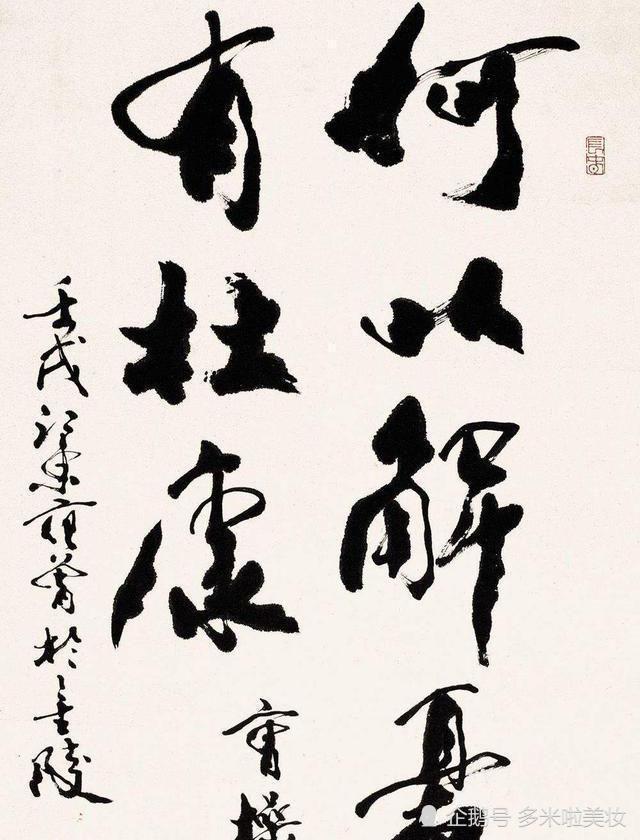 何以解憂
有杜康
曹操
壬戌於金陵
企鹅号 多米啦美妆